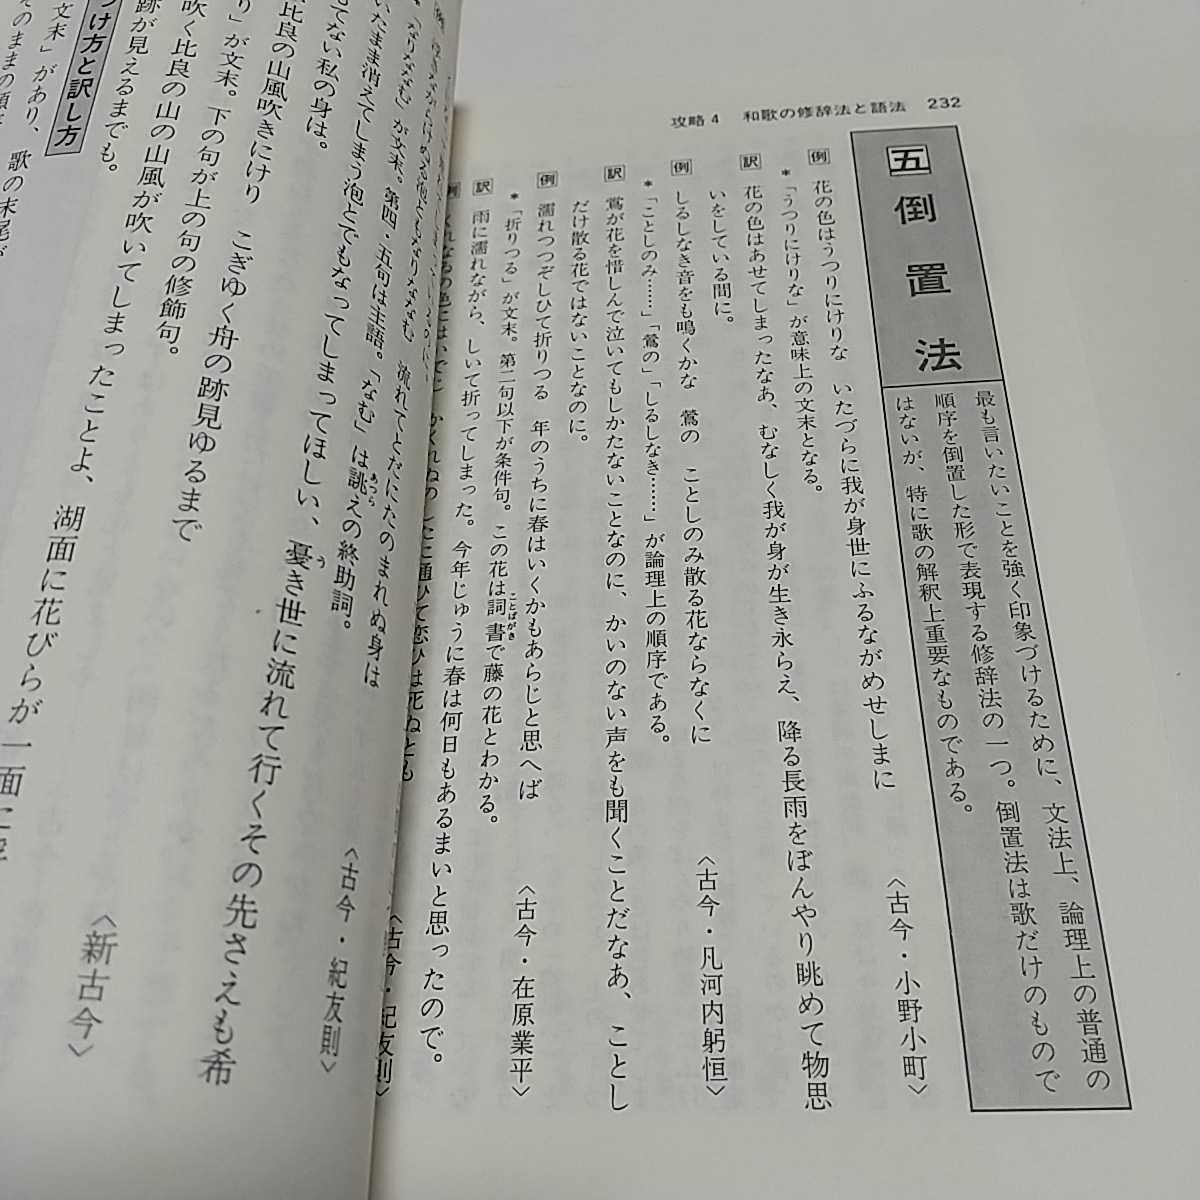 攻略4 和歌の修辞法と語法 232
五 倒置法
最も言いたいことを強く印象づけるために、文法上、論理上の普通の
順序を倒置した形で表現する修辞法の一つ。倒置法は歌だけのもので
はないが、特に歌の解釈上重要なものである。
例 花の色はうつりにけりな いたづらに我が身世にふるながめせしまに 〈古今・小野小町〉
*「うつりにけりな」が意味上の文末となる。
訳 花の色はあせてしまったなあ、むなしく我が身が生き永らえ、降る長雨をぼんやり眺めて物思
いをしている間に。
例 しるしなき音をも鳴くかな 鶯の ことしのみ散る花ならなくに 〈古今・凡河内躬恒〉
*「ことしのみ……」「鶯の」「しるしなき……」が論理上の順序である。
訳 鶯が花を惜しんで泣いてもしかたないことなのに、かいのない声をも聞くことだなあ、ことし
だけ散る花ではないことなのに。
例 濡れつつぞしひて折りつる 年のうちに春はいくかもあらじと思へば 〈古今・在原業平〉
*「折りつる」が文末。第二句以下が条件句。この花は詞書ことばがきで藤の花とわかる。
訳 雨に濡れながら、しいて折ってしまった。今年じゅうに春は何日もあるまいと思ったので。
通ひて恋ひは死ぬとも 〈古今・紀友則〉
「なりななむ」が文末。第四・五句は主語。「なむ」は誂あつらえの終助詞。
なりななむ 流れてとだにたのまれぬ身は 〈古今・紀友則〉
いたまま消えてしまう泡とでもなってしまってほしい、憂うき世に流れて行くその先さえも希
もてない私の身は。
比良の山風吹きにけり こぎゆく舟の跡見ゆるまで 〈新古今〉
り」が文末。下の句が上の句の修飾句。
吹く比良の山の山風が吹いてしまったことよ、湖面に花びらが一面に
跡が見えるまでも。
つけ方と訳し方
文末」があり、歌の末尾が
そのままの順